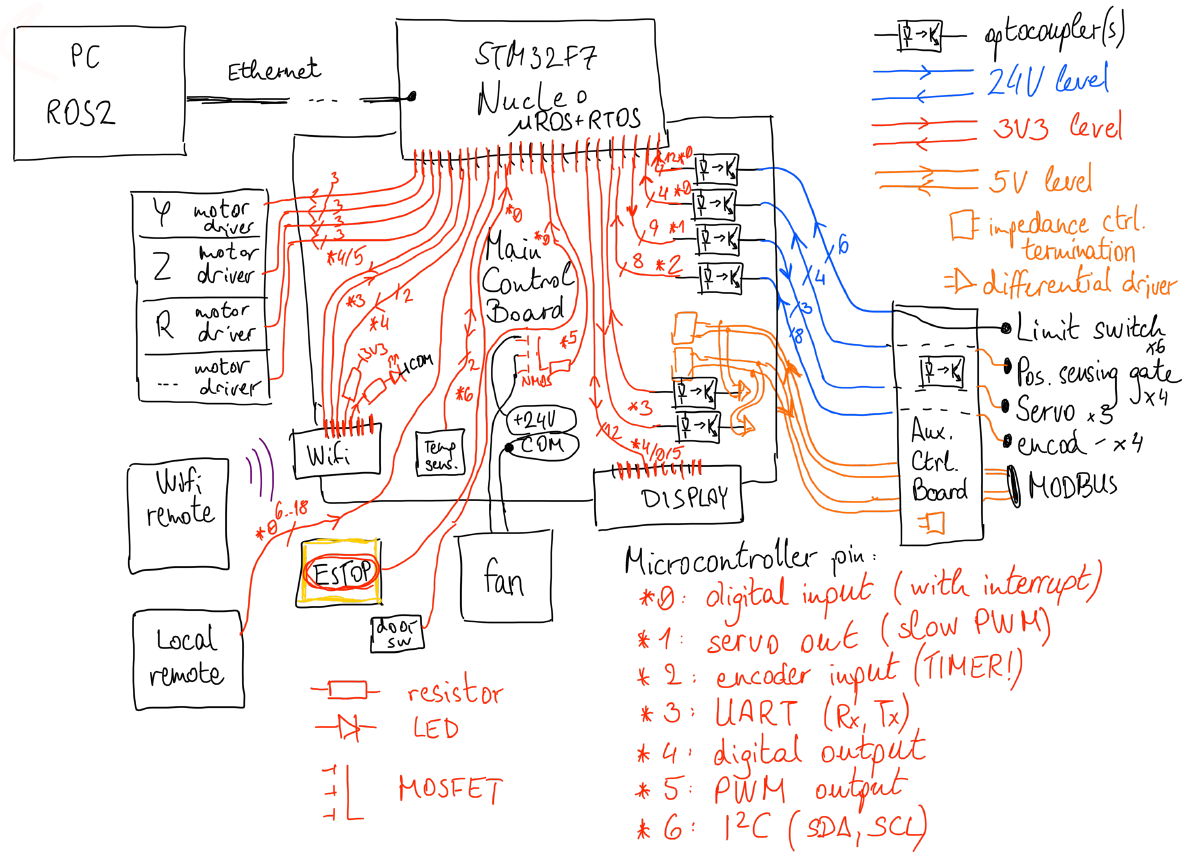 PC
ROS2
Ethernet
STM32F7
Nucleo
µROS+RTOS
optocoupler(s)
24V level
3V3 level
5V level
impedance ctrl.
termination
differential driver
φ motor
driver
Z motor
driver
R motor
driver
... motor
driver
3
3
3
3
*4/5
*3
2
*4
3V3
COM
Wifi
Main
Control
Board
*0
*0
*5
NMOS
2
*6
Temp
sens.
+24V
COM
12 *0
4 *0
9 *1
8 *2
6
4
3
8
*3
12
*4/0/5
DISPLAY
Aux.
Ctrl.
Board
Limit switch
*6
Pos. sensing gate
x4
Servo x3
encod - x4
MODBUS
Wifi
remote
*0 6..18
Local
remote
ESTOP
door
sw
fan
resistor
LED
MOSFET
Microcontroller pin:
*0: digital input (with interrupt)
*1: servo out (slow PWM)
*2: encoder input (TIMER!)
*3: UART (Rx, Tx)
*4: digital output
*5: PWM output
*6: I²C (SDA, SCL)